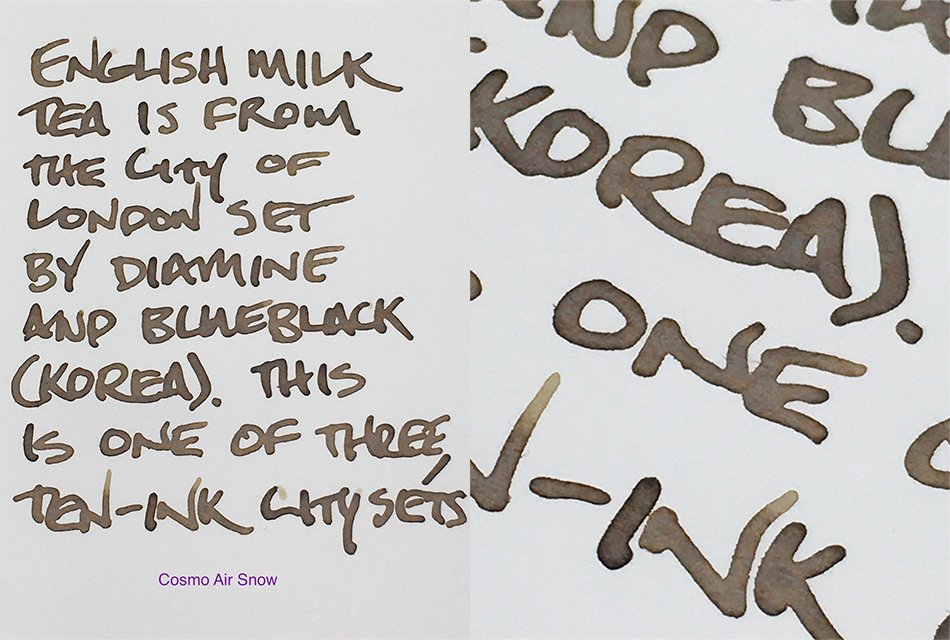 ENGLISH MILK
TEA IS FROM
THE CITY OF
LONDON SET
BY DIAMINE
AND BLUEBLACK
(KOREA). THIS
IS ONE OF THREE
TEN-INK CITY SETS
Cosmo Air Snow
AND BLU
KOREA).
ONE
N-INK